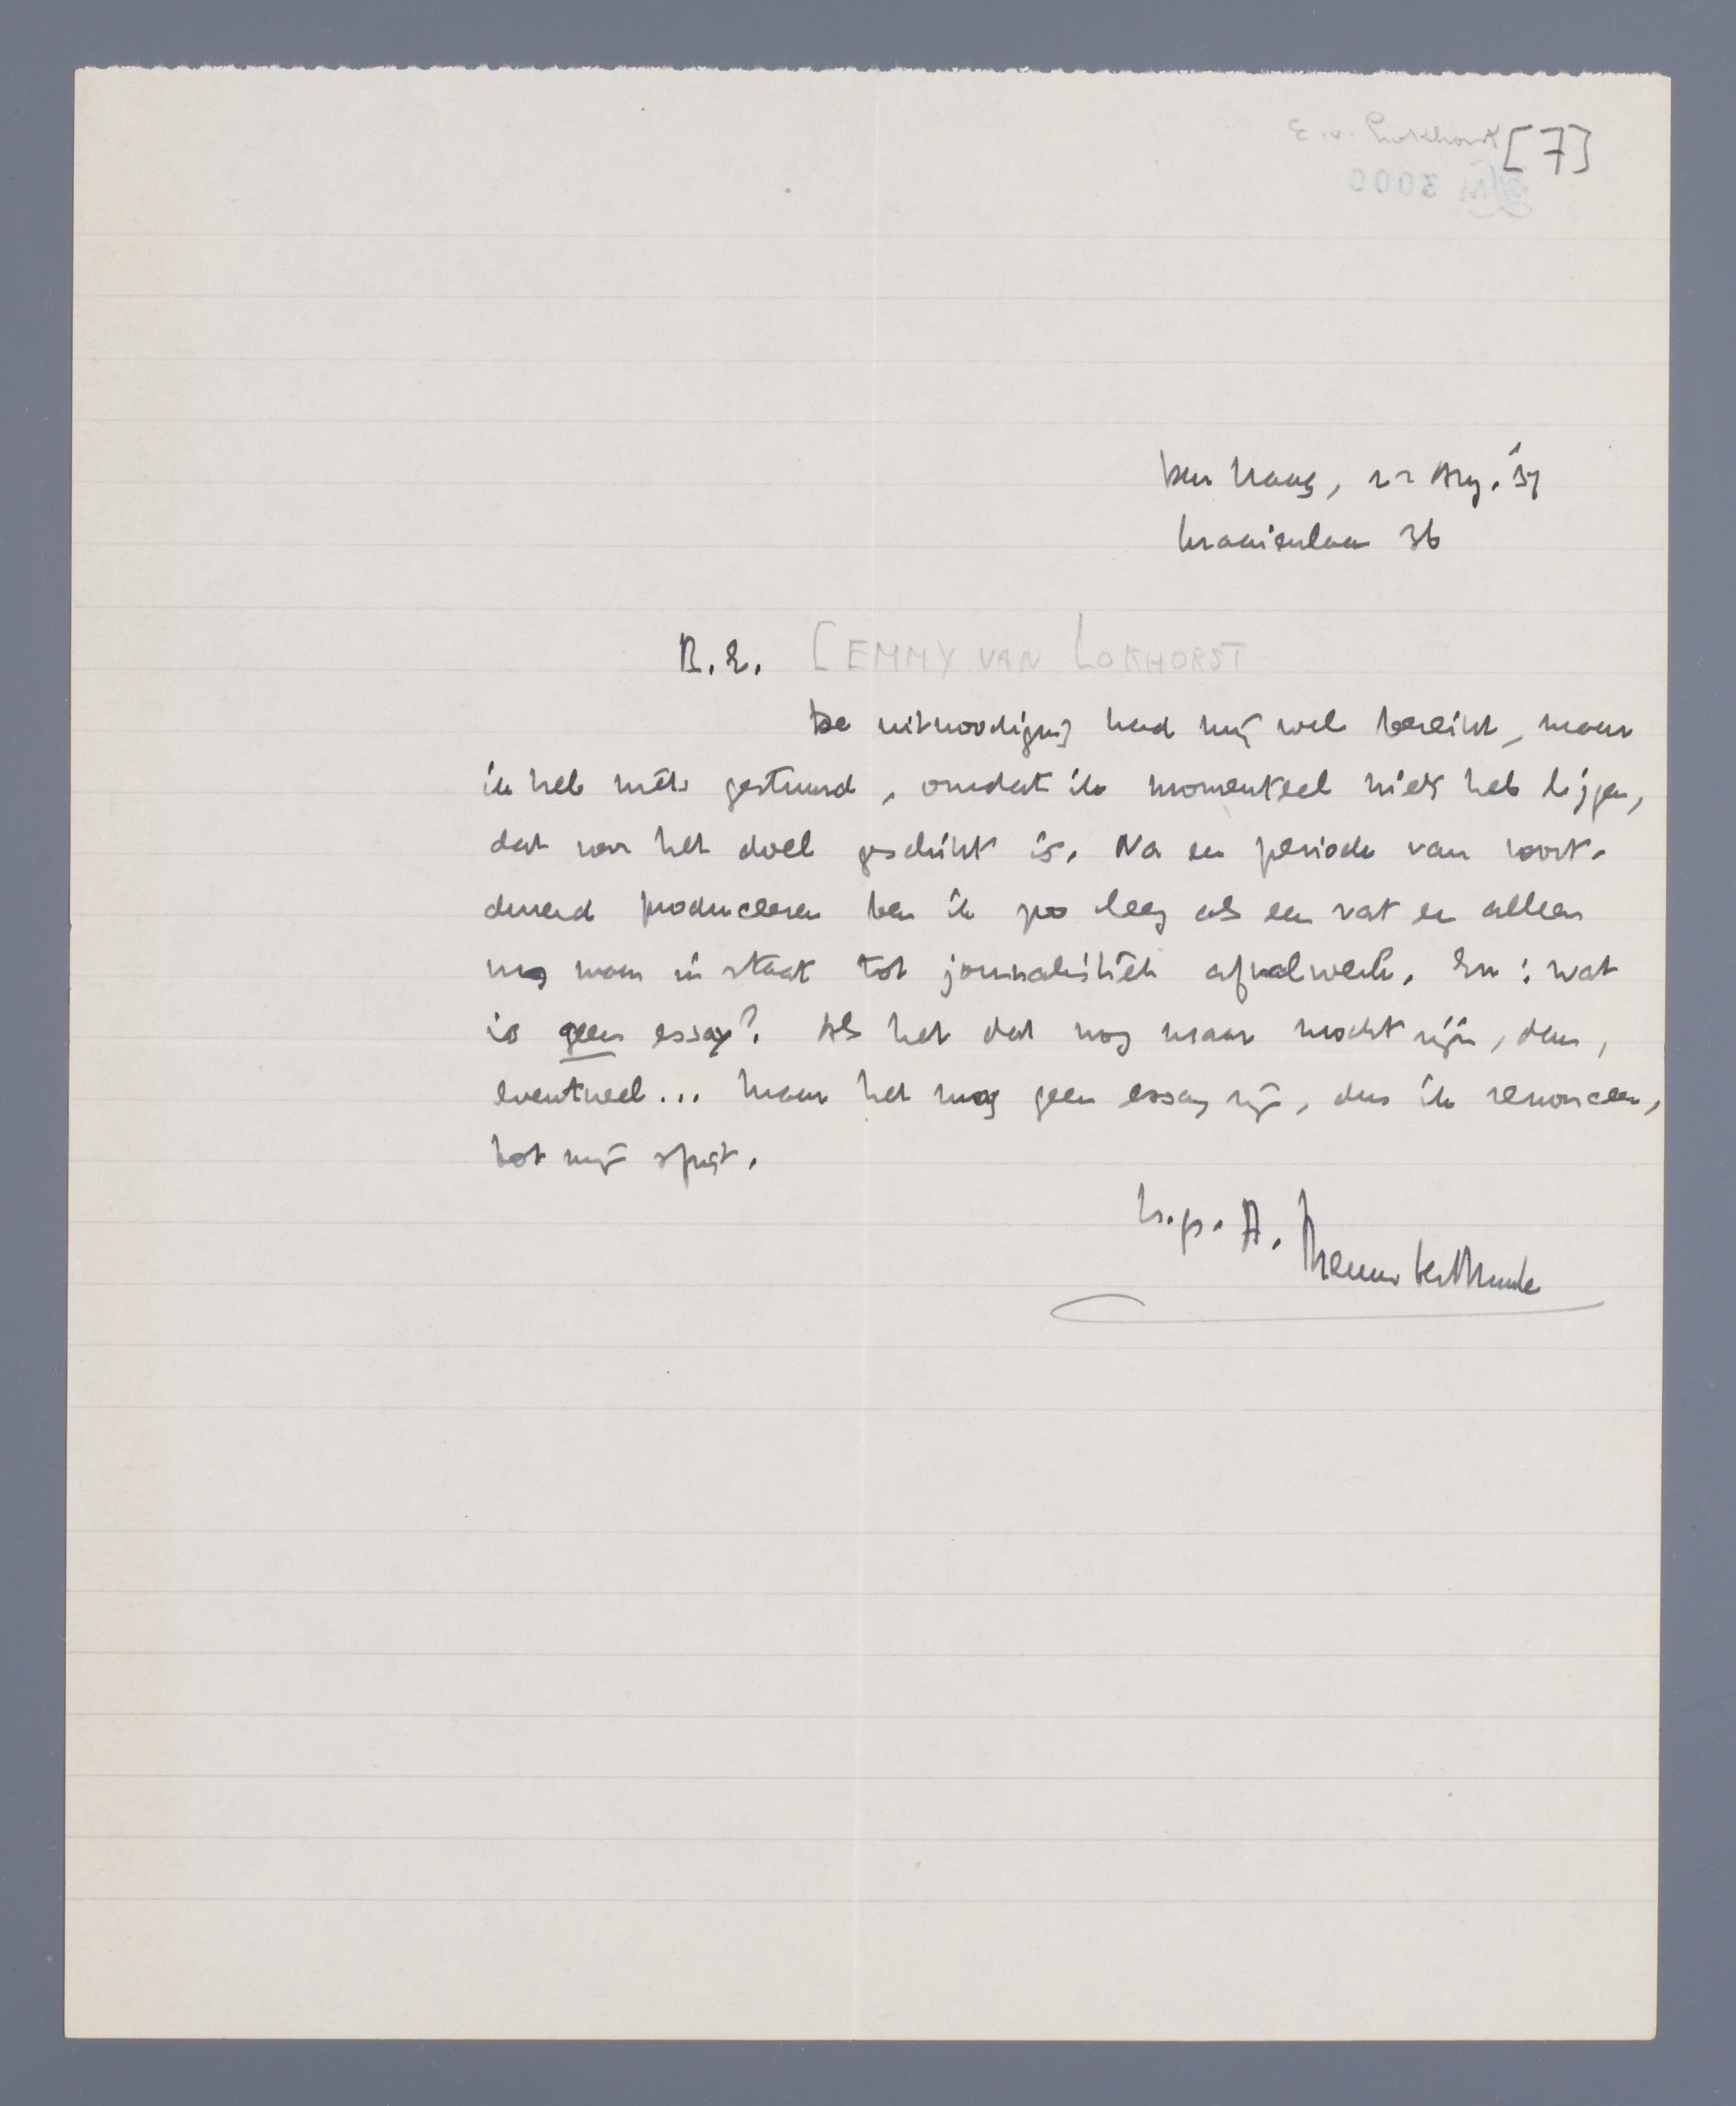 E. v. Lokhorst [7]
3000
Den Haag, 22 Aug. '37
Kraaienlaan 36
B.E. [EMMY VAN LOKHORST
De uitnoodiging had mij wel bereikt, maar
ik heb niets gestuurd, omdat ik momenteel niets heb liggen,
dat voor het doel geschikt is. Na een periode van voort-
durend produceeren ben ik zoo leeg als een vat en alleen
nog maar in staat tot journalistiek afvalwerk. En: wat
is geen essay? Als het dat nog maar mocht zijn, dan,
eventueel... Maar het mag geen essay zijn, dus ik renonceer,
tot mijn spijt.
h.gr. A.
Menno ter Braak